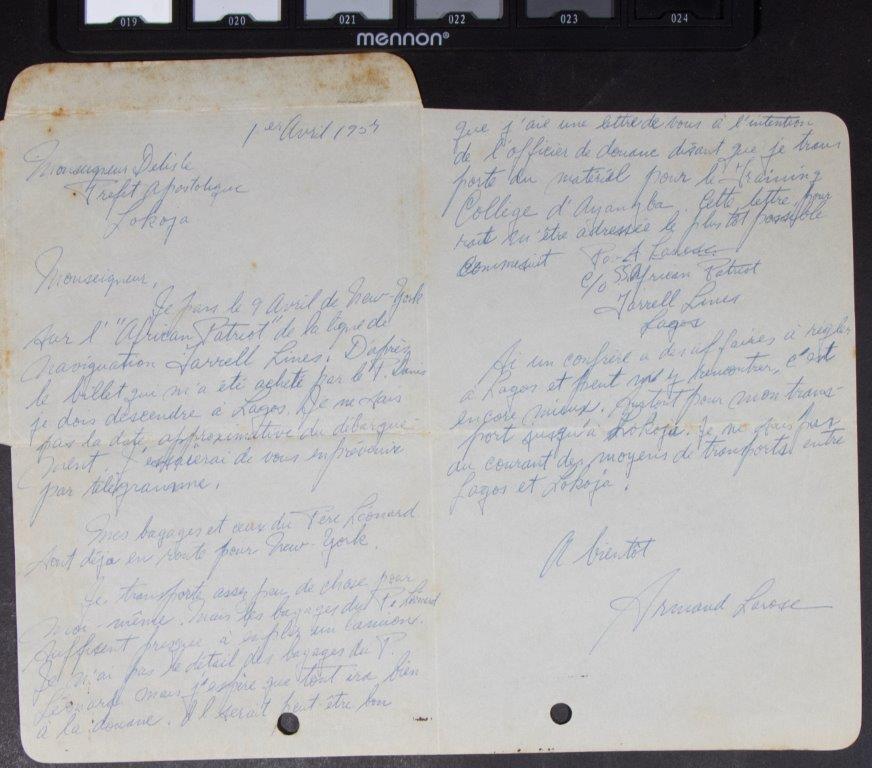 019 020 021 022 023 024
mennon®
1er Avril 1957
Monseigneur Delisle
Préfet Apostolique
Lokoja
Monseigneur,
Je pars le 9 Avril de New-York
sur l'"African Patriot" de la ligne de
naviguation Farrell Lines. D'après
le billet qui m'a été acheté par le P. Denis
je dois descendre à Lagos. Je ne sais
pas la date approximative du débarque-
ment. J'essaierai de vous en prévenir
par télégramme.
Mes bagages et ceux du Père Léonard
sont déjà en route pour New-York.
Je transporte assez peu de chose pour
moi-même. Mais les bagages du P. Léonard
suffisent presque à emplir un camion.
Je n'ai pas le détail des bagages du P.
Léonard mais j'espère que tout ira bien
à la douane. Il serait peut-être bon
que j'aie une lettre de vous à l'intention
de l'officier de douane disant que je trans
porte du matériel pour le Training
College d'Ayangba. Cette lettre pour
rait m'être adressée le plus tôt possible
comme suit A Larose
c/o SS African Patriot
Farrell Lines
Lagos
Si un confrère a des affaires à régler
à Lagos et peut m'y rencontrer, c'est
encore mieux. surtout pour mon trans-
port jusqu'à Lokoja. Je ne suis pas
au courant des moyens de transports entre
Lagos et Lokoja.
A bientôt
Armand Larose